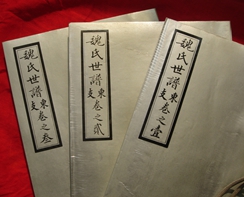 魏氏世譜東支卷之壹
魏氏世譜東支卷之貳
魏氏世譜東支卷之叁